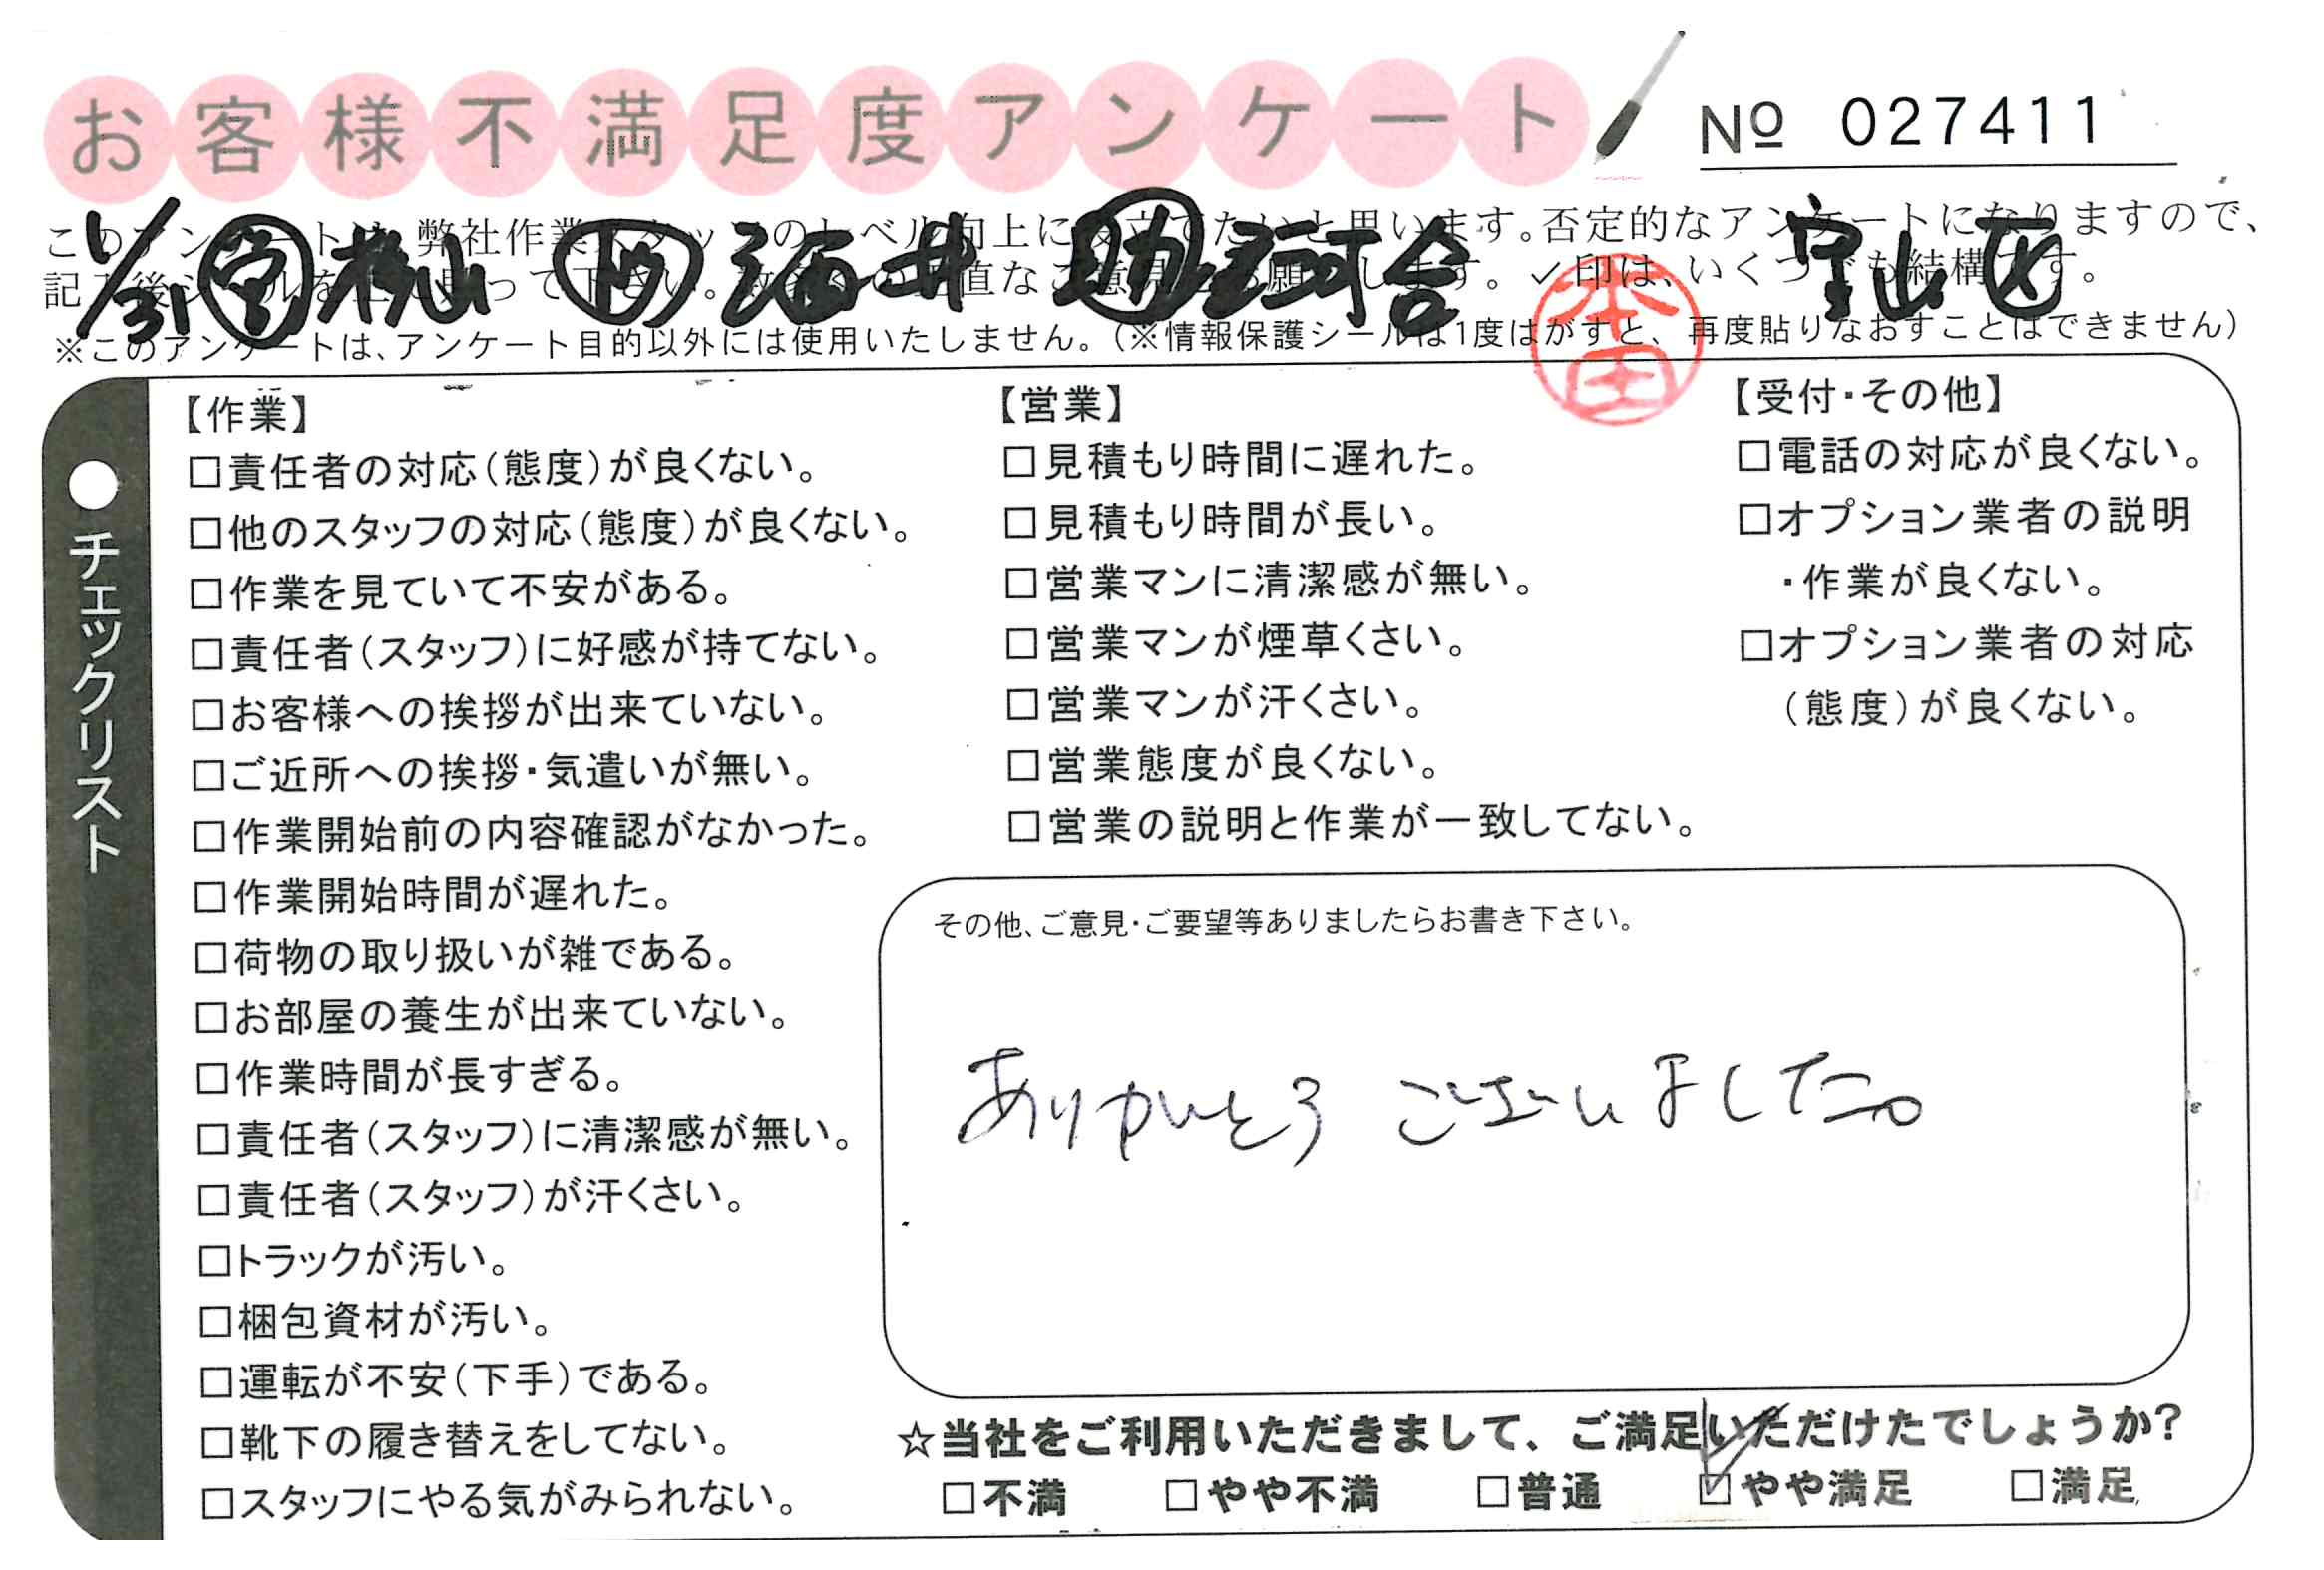 お客様不満足度アンケート
№ 027411
1/31 桜山 酒井 助 河合 守山区
※このアンケートは、アンケート目的以外には使用いたしません。（※情報保護シールは1度はがすと、再度貼りなおすことはできません）
本田
●チェックリスト
【作業】
□責任者の対応（態度）が良くない。
□他のスタッフの対応（態度）が良くない。
□作業を見ていて不安がある。
□責任者（スタッフ）に好感が持てない。
□お客様への挨拶が出来ていない。
□ご近所への挨拶・気遣いが無い。
□作業開始前の内容確認がなかった。
□作業開始時間が遅れた。
□荷物の取り扱いが雑である。
□お部屋の養生が出来ていない。
□作業時間が長すぎる。
□責任者（スタッフ）に清潔感が無い。
□責任者（スタッフ）が汗くさい。
□トラックが汚い。
□梱包資材が汚い。
□運転が不安（下手）である。
□靴下の履き替えをしてない。
□スタッフにやる気がみられない。
【営業】
□見積もり時間に遅れた。
□見積もり時間が長い。
□営業マンに清潔感が無い。
□営業マンが煙草くさい。
□営業マンが汗くさい。
□営業態度が良くない。
□営業の説明と作業が一致してない。
【受付・その他】
□電話の対応が良くない。
□オプション業者の説明
・作業が良くない。
□オプション業者の対応
（態度）が良くない。
その他、ご意見・ご要望等ありましたらお書き下さい。
ありがとうございました。
☆当社をご利用いただきまして、ご満足いただけたでしょうか?
□不満 □やや不満 □普通 ☑やや満足 □満足